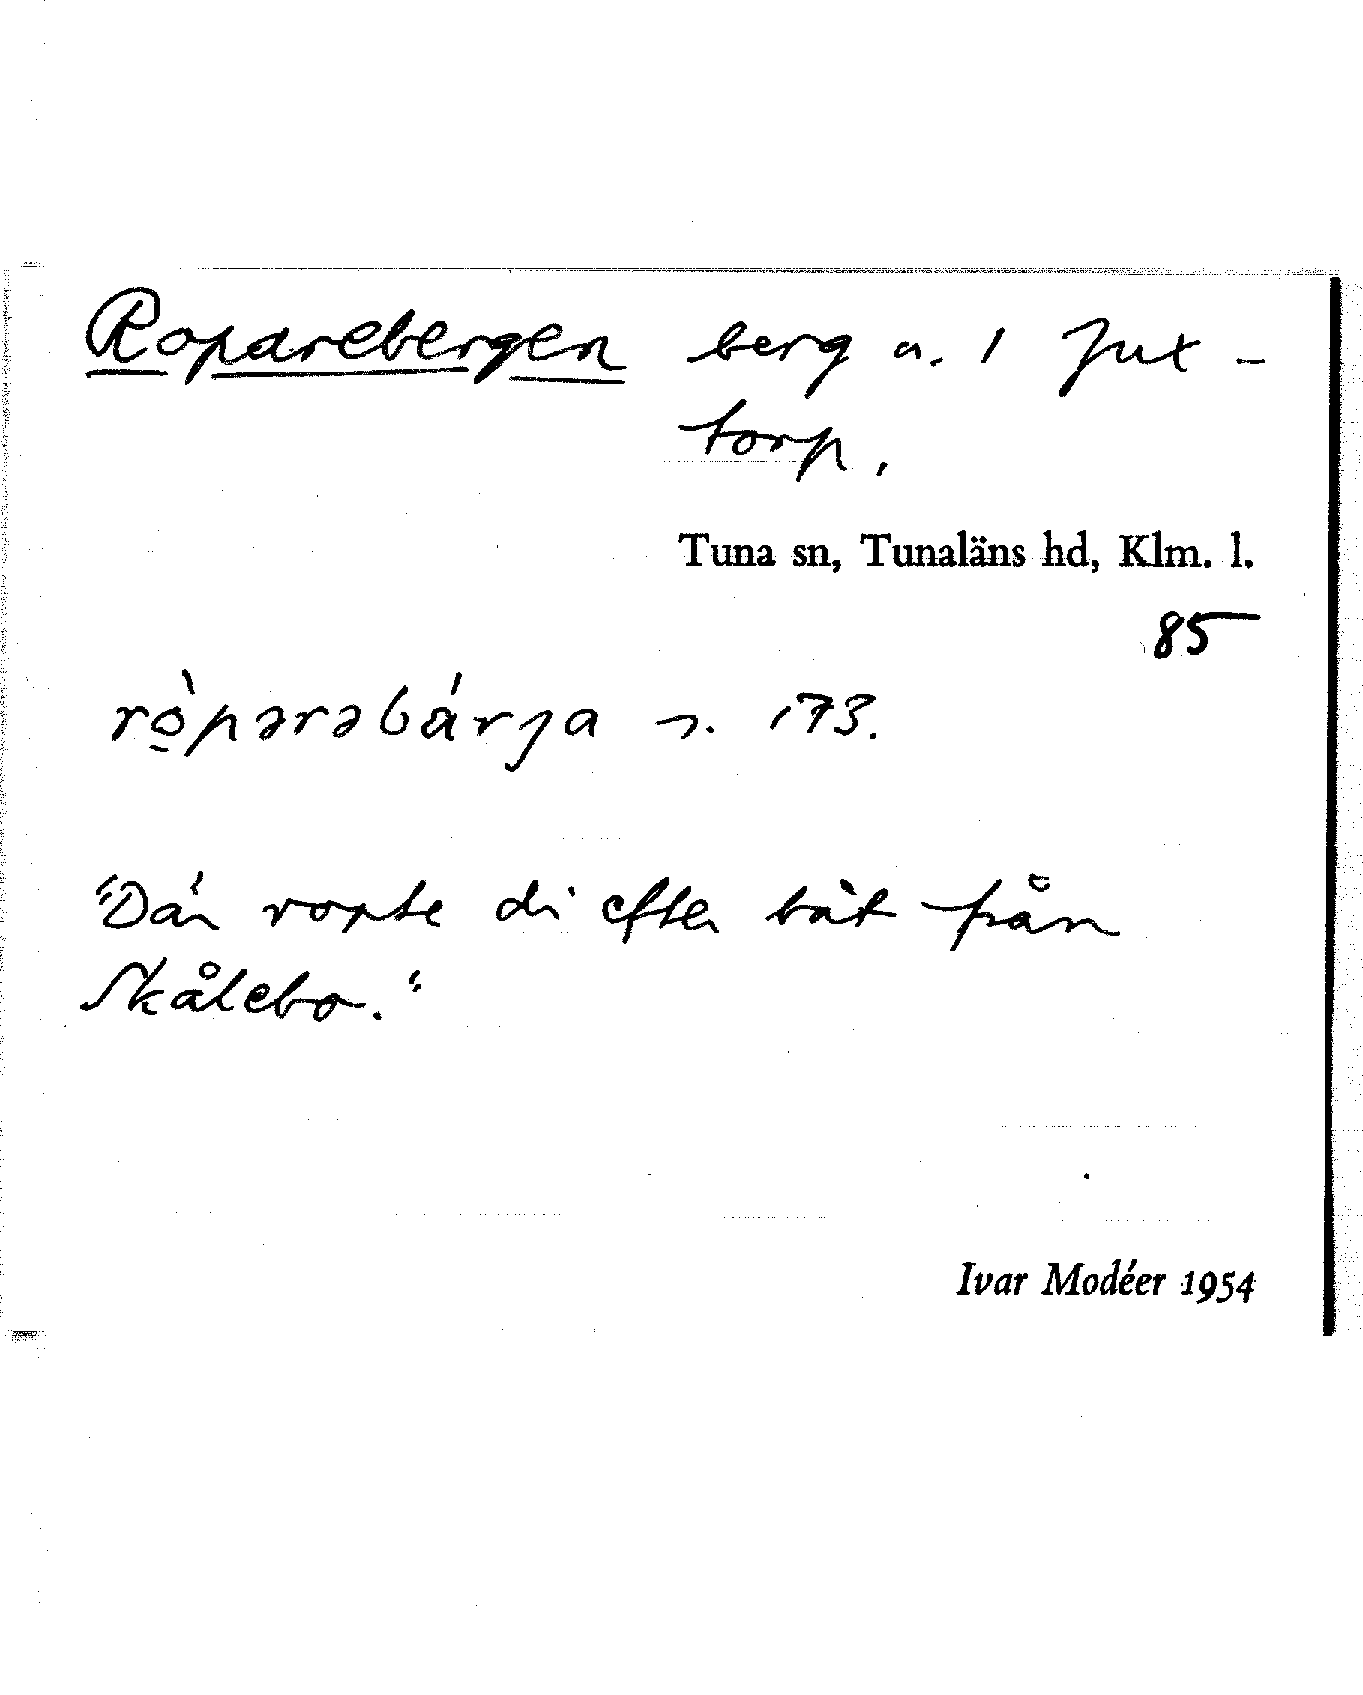 Roparebergen berg a. 1 Jux-
torp.
Tuna sn, Tunaläns hd, Klm. l.
85
rò̱pərəbárja s. 173.
"Där ropte di efter båt från
Skålebo."
Ivar Modéer 1954